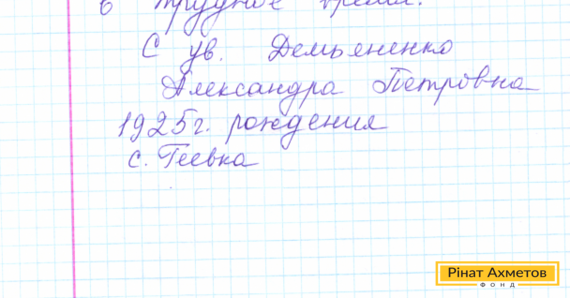 в трудное время.
С ув. Демьяненко
Александра Петровна
1925г. рождения
с. Геевка
Рінат Ахметов
ФОНД